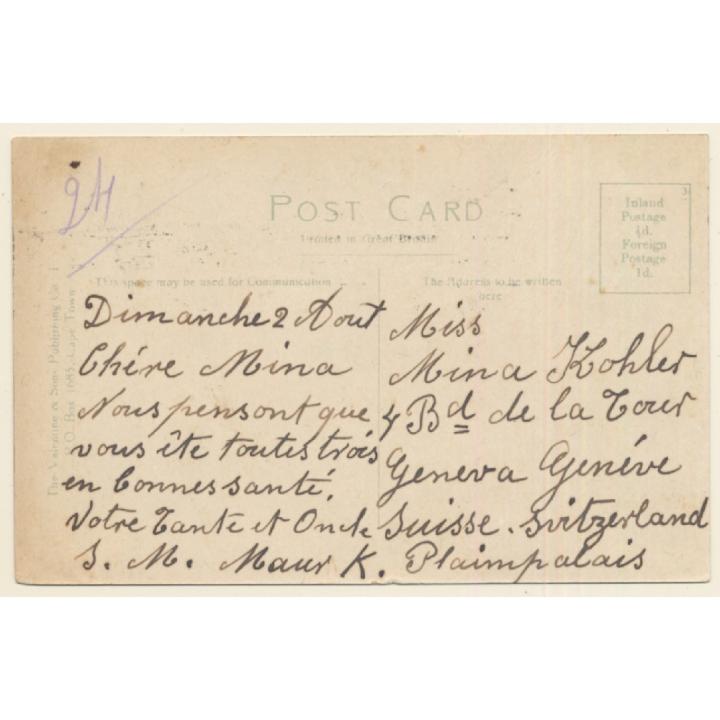 24
POST CARD
Printed in Great Britain
This space may be used for Communication
The Address to be written
here
3
Inland
Postage
½d.
Foreign
Postage
1d.
The Valentine & Sons Publishing Co.
P.O. Box 1685, Cape Town
Dimanche 2 Aout
Chére Mina
Nous pensont que
vous ête toutes trois
en bonnes santé.
Votre Tante et Oncle
S. M. Maur K.
Miss
Mina Kohler
4 Bd de la Tour
Geneva Genéve
Suisse. Svitzerland
Plaimpalais